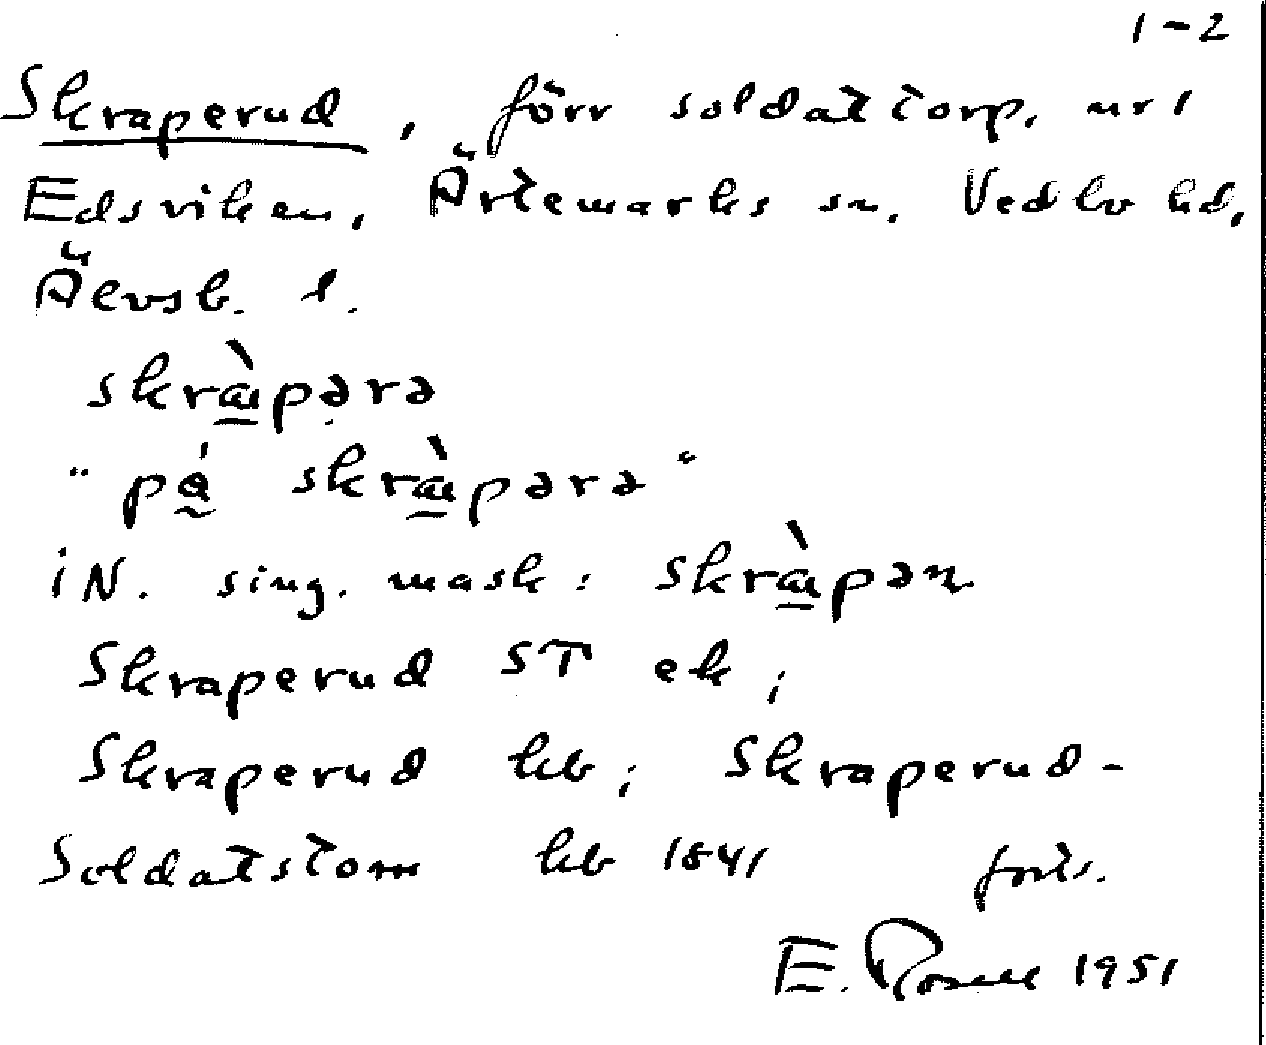 1-2
Skraperud, förr soldattorp, nr 1
Edsviken, Ärtemarks sn. Vedbo hd,
Älvsb. l.
skræ̀pərə
"pǻ skræ̀pərə"
iN. sing. mask: skræ̀pən
Skraperud ST ek;
Skraperud kb; Skraperud-
Soldatstom kb 1841 forts.
E. Rosell 1951